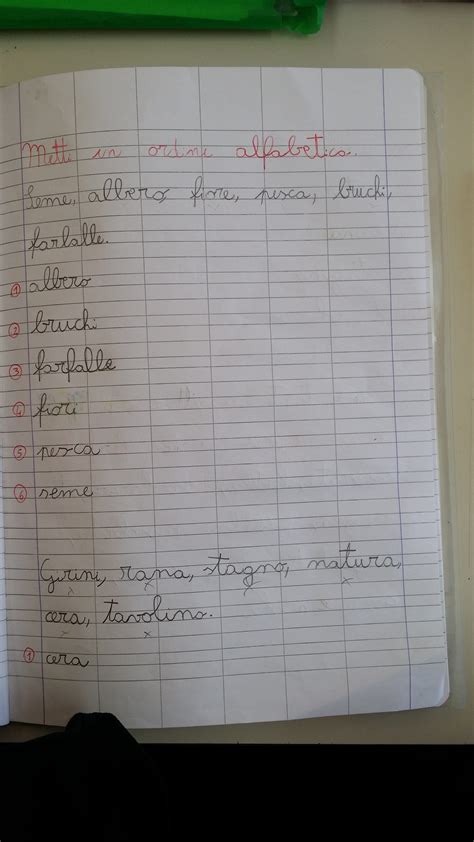 Metti in ordine alfabetico.
Seme, albero fiore, pesca, bruchi,
farfalle.
① albero
② bruchi
③ farfalle
④ fiori
⑤ pesca
⑥ seme
Girini, rana, stagno, natura,
cera, tavolino.
① cera